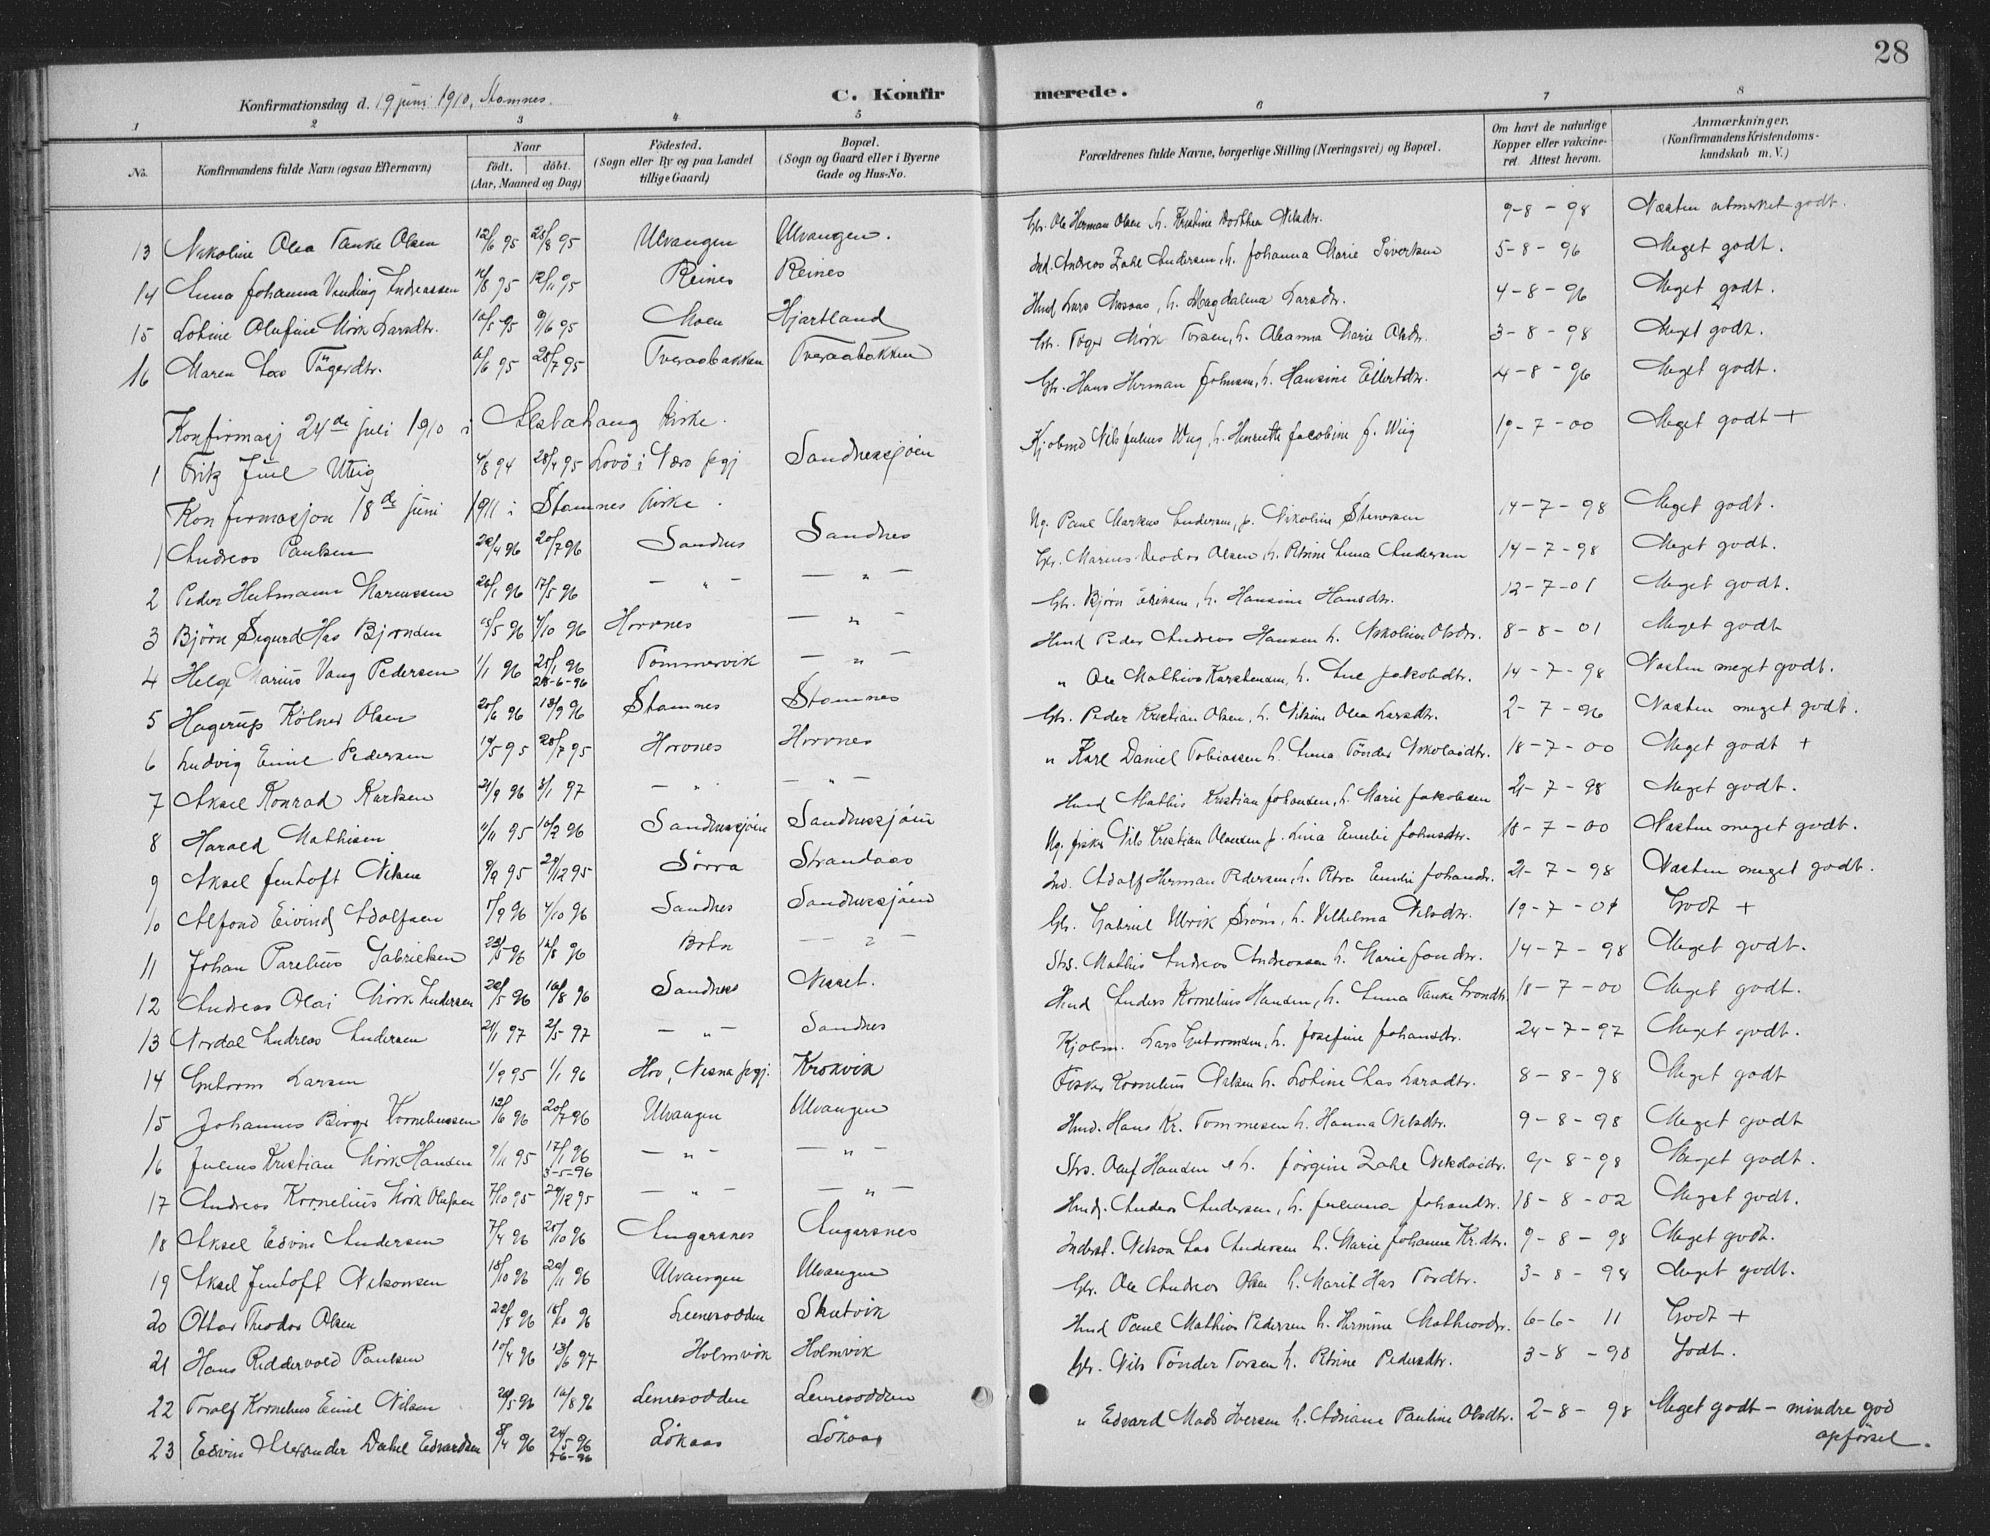 28
Konfirmationsdag d. 19 juni 1910, Stamnes. C. Konfirmerede.
1 2 3 4 5 6 7 8
No. Konfirmandens fulde Navn (ogsaa Efternavn) Naar født. døbt. (Aar, Maaned og Dag) Fødested. (Sogn eller By og paa Landet tillige Gaard) Bopæl. (Sogn og Gaard eller i Byerne Gade og Hus-No. Forældrenes fulde Navne, borgerlige Stilling (Næringsvei) og Bopæl. Om havt de naturlige Kopper eller vakcineret. Attest herom. Anmærkninger. (Konfirmandens Kristendomskundskab m. V.)
13 Nikoline Olea Tanke Olsen 12/6 95 25/8 95 Ulvangen Ulvangen. Gbr. Ole Herman Olsen h. Kristine Dorthea Nilsdtr. 9-8-98 Næsten utmerket godt.
14 Anna Johanna Vinding Andreassen 95 12/11 95 Reines Reines Ind. Andreas Zahl Andersen, h. Johanna Marie Sivertsen 5-8-96 Meget godt.
15 Lotine Olufine Mørk Larsdtr. 10/5 95 9/6 95 Moen Hjartland Hmd Lars h. Magdalena Larsdtr. 4-8-96 Meget godt.
16 Maren Tøgerdtr. 6/6 95 28/7 95 Tveraabakken Tveraabakken Gbr. Tøger Mørk Torsen, h. Marie Olsdtr. 3-8-98 Meget godt.
Gbr. Hans Herman Johnsen, h. Hansine Ellertsdtr. 4-8-96 Meget godt.
Konfirmasj 24de juli 1910 i Alstahaug Kirke.
1 Fritz Juel Wiig 4/8 94 28/4 95 Lovø i Værø pgj Sandnessjøen Kjøbmd Nils Julius Wiig, h. Henriette Jacobine f. Wiig 19-7-00 Meget godt +
Konfirmasjon 18de juni 1911 i Stamnes Kirke.
1 Andreas Paulsen 22/4 96 20/7 96 Sandnes Sandnes Ug. Paul Markus Andersen, p. Nikoline Stenersen 14-7-98 Meget godt.
2 Peder Hartmann Mariussen 26/1 96 17/5 96 — " — — " — Gbr. Marius Teodor Olsen, h. Petrine Anna Andersen 14-7-98 Meget godt.
3 Bjørn Sigurd Has Bjørnsen 25/5 96 4/10 96 Horvnes — " — Gbr. Bjørn Eriksen, h. Hansine Hansdtr. 12-7-01 Meget godt.
4 Helge Marius Vang Pedersen 1/1 96 25/1 96 28-6-96 Tømmervik — " — Hmd Peder Andreas Hansen h. Nikoline Olsdtr. 8-8-01 Meget godt
5 Hagerup Kølner Olsen 20/6 96 13/9 96 Stamnes Stamnes " Ole Mathias Karstensen, h. Ane Jakobdtr. 14-7-98 Næsten meget godt.
6 Ludvig Emil Pedersen 19/5 95 28/7 95 Horvnes Horvnes Gbr. Peder Kristian Olsen, h. Nilsine Olea Larsdtr. 2-7-96 Næsten meget godt.
7 Aksel Konrad Karlsen 21/9 96 8/1 97 — " — — " — " Karl Daniel Tobiassen h. Anna Tønder Nikolaidtr. 18-7-00 Meget godt +
8 Harald Mathisen 11/11 95 16/2 96 Sandnessjøen Sandnessjøen Hmd Mathis Kristian Johansen, h. Marie Jakobsen 21-7-98 Meget godt.
9 Aksel Jentoft Nilsen 9/9 95 29/12 95 Sørra Strandaas Ug. fisker Nils Kristian Olausen p. Lina Emelie Johnsdtr. 18-7-00 Næsten meget godt.
10 Alfond Eivind Adolfsen 5/9 96 4/10 96 Sandnes Sandnessjøen Ind. Adolf Herman Pedersen, h. Petra Emelie Johansdtr. 21-7-98 Næsten meget godt.
11 Johan Parelius Gabrielsen 23/5 96 16/8 96 Botn — " — Gbr. Gabriel Ulrik Strøm, h. Vilhelma Nilsdtr. 19-7-01 Godt +
12 Andreas Olai Mørk Andersen 22/5 96 16/8 96 Sandnes Nesset. Strs. Mathis Andreas Andreassen h. Marie Jonsdtr. 14-7-98 Meget godt.
13 Nordal Andreas Andersen 21/1 97 2/5 97 — " — Sandnes Hmd Anders Kornelius Hansen, h. Anna Tanke 18-7-00 Meget godt.
14 Guttorm Larsen 1/9 95 1/1 96 Hov, Nesna pgj. Krokvik Kjøbm. Lars Guttormsen, h. Josefine Johansdtr. 24-7-97 Meget godt.
15 Johannes Birger Korneliussen 12/6 96 20/7 96 Ulvangen Ulvangen Fisker Kornelius Nilsen h. Lotine Larsdtr. 8-8-98 Meget godt
16 Julius Kristian Mørk Hansen 9/11 95 17/1 96 3-5-96 — " — — " — Hmd. Hans Kr. Tommesen h. Hanna Nilsdtr. 9-8-98 Meget godt
17 Andreas Kornelius Mørk Olufsen 7/10 95 29/12 95 — " — — " — Strs. Oluf Hansen h. Jørgine Zahl Nikolaidtr. 9-8-98 Meget godt.
18 Aksel Edvin Andersen 7/4 96 25/10 96 Angersnes Angersnes Hmd. Anders Andersen, h. Juliana Johansdtr. 18-8-02 Meget godt.
19 Aksel Jentoft Nilsonsen 18/10 96 22/11 96 Ulvangen Ulvangen Inderst. Nilson Andersen h. Marie Johanna Kr.dtr. 9-8-98 Meget godt.
20 Ottar Theodor Olsen 22/8 96 18/10 96 Leinesodden Skutvik Gbr. Ole Andreas Olsen h. Marit Has Tordtr. 3-8-98 Meget godt.
21 Hans Riddervold Paulsen 10/4 96 13/6 97 Holmvik Holmvik Hmd Paul Mathias Pedersen h. Hermine Mathiasdtr. 6-6-11 Godt +
22 Toralf Kornelius Emil Nilsen 20/5 96 16/8 96 Leinesodden Leinesodden Gbr. Nils Tønder Torsen h. Petrine Pedersdtr. 3-8-98 Godt.
23 Edvin Alexander Dahl Edvardsen 8/4 96 24/5 96 7-6-96 Løkaas Løkaas " Edvard Mads Iversen h. Adriane Pauline Olsdtr. 2-8-98 Meget godt - mindre god opførsel.